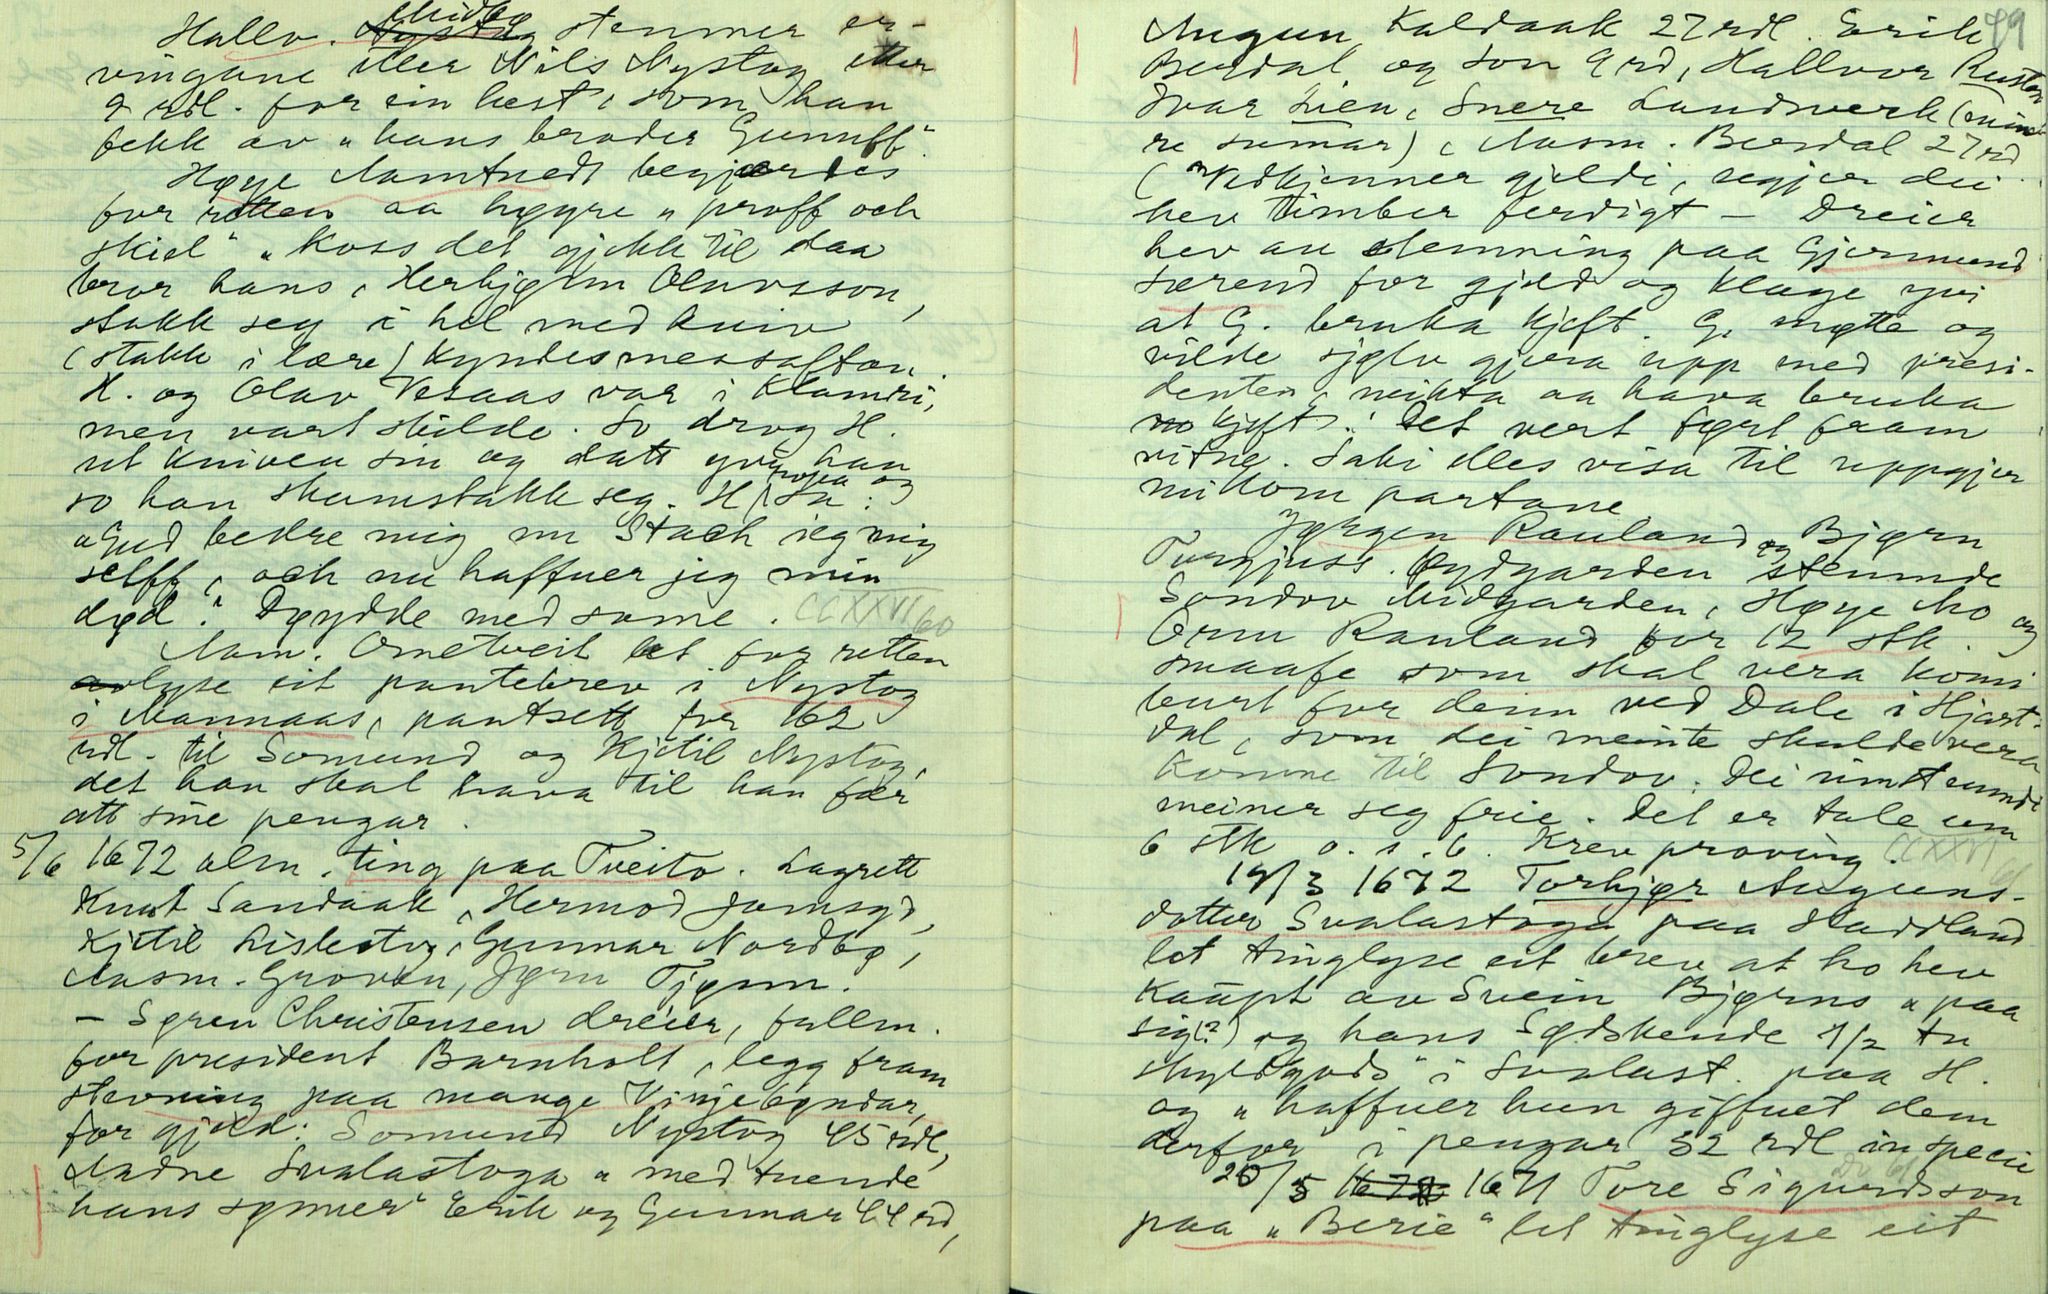 Hallv. Midbø stemner er-
vingane etter Nils Nystog etter
9 rdl. for ein hest, som han
fekk av "hans broder Gunuff".
Høye Aamtvedt begjærdes
for retten aa høyre "proff och
skiel" "koss det gjekk til daa
bror hans, Herbjørn Olavsson,
stakk seg i hel med kniv
(stakk i lære) kyndesmessaftan.
H. og Olav Vesaas var i klamri,
men vart skilde. So drog H.
ut kniven sin og datt yvi han
so han skamstakk seg. H. ropa og sa:
"Gud bedre mig nu Stach jeg mig
selff, och nu haffuer jeg min
død". Døydde med same. CCXXVI/60
Aam. Ornetveit let for retten
lyse eit pantebrev i Nystog
i Mannaas, pantsett for 162
rdl. til Somund og Kjetil Nystog,
det han skal hava til han fær
att sine pengar.
5/6 1672 alm. ting paa Tveito. Lagrett
Knut Sandaak, Hermod
Kjetil Lislestog, Gunnar Nordbø,
Aasm. Groven, Jørn Tjønn.
- Søren Christensen dreier, fullm.
for president Barnholt, legg fram
stevning paa mange Vinjebøndar,
for gjeld: Somund Nystog 45 rdl,
Aadne Svalastoga "med tuende
hans sønner" Erik og Gunnar 44 rd,
Augun Kaldaak 27 rdl. Erik 49
Berdal og son 9 rd, Hallvor
Ivar Lien, Snere Landsverk (mind-
re sumar), Aasm. Berdal 27 rd
(Vedkjenner gjeldi, segjer dei
hev timber ferdigt - Dreier
hev au stemning paa Gjermund
Særend for gjeld og klage yvi
at G. bruka kjeft. G. møtte og
vilde sjølv gjera upp med presi-
denten, neikta aa hava bruka
kjeft. Det vert ført fram
vitne. Saki elles visa til uppgjer
millom partane.
Jørgen Rauland og Bjørn
Turgjuss. Bydgarden stemnde
Sondov Midgarden, Høye Mo og
Orm Rauland for 12 stk.
smaafe som skal vera komi
burt for deim ved Dale i Hjart-
dal, som dei meinte skulde vera
komne til Sondov. Dei instemnde
meiner seg frie. Det er tale um
6 stk o. s. b. Krev proving. CCXXVI
19/3 1672 Torbjør Auguns-
dotter Svalastoga paa Haddland
let tinglyse eit brev at ho hev
kaupt av Svein Bjørns "paa
sig(?) og hans Sødskende 1/2 tn
skyldgods" i Svalast. paa H.
og "haffuer hun giffuet dem
derfor" i pengar 32 rdl in specie
20/5 1671 Tore Sigurdsson
paa "Berie" let tinglyse eit